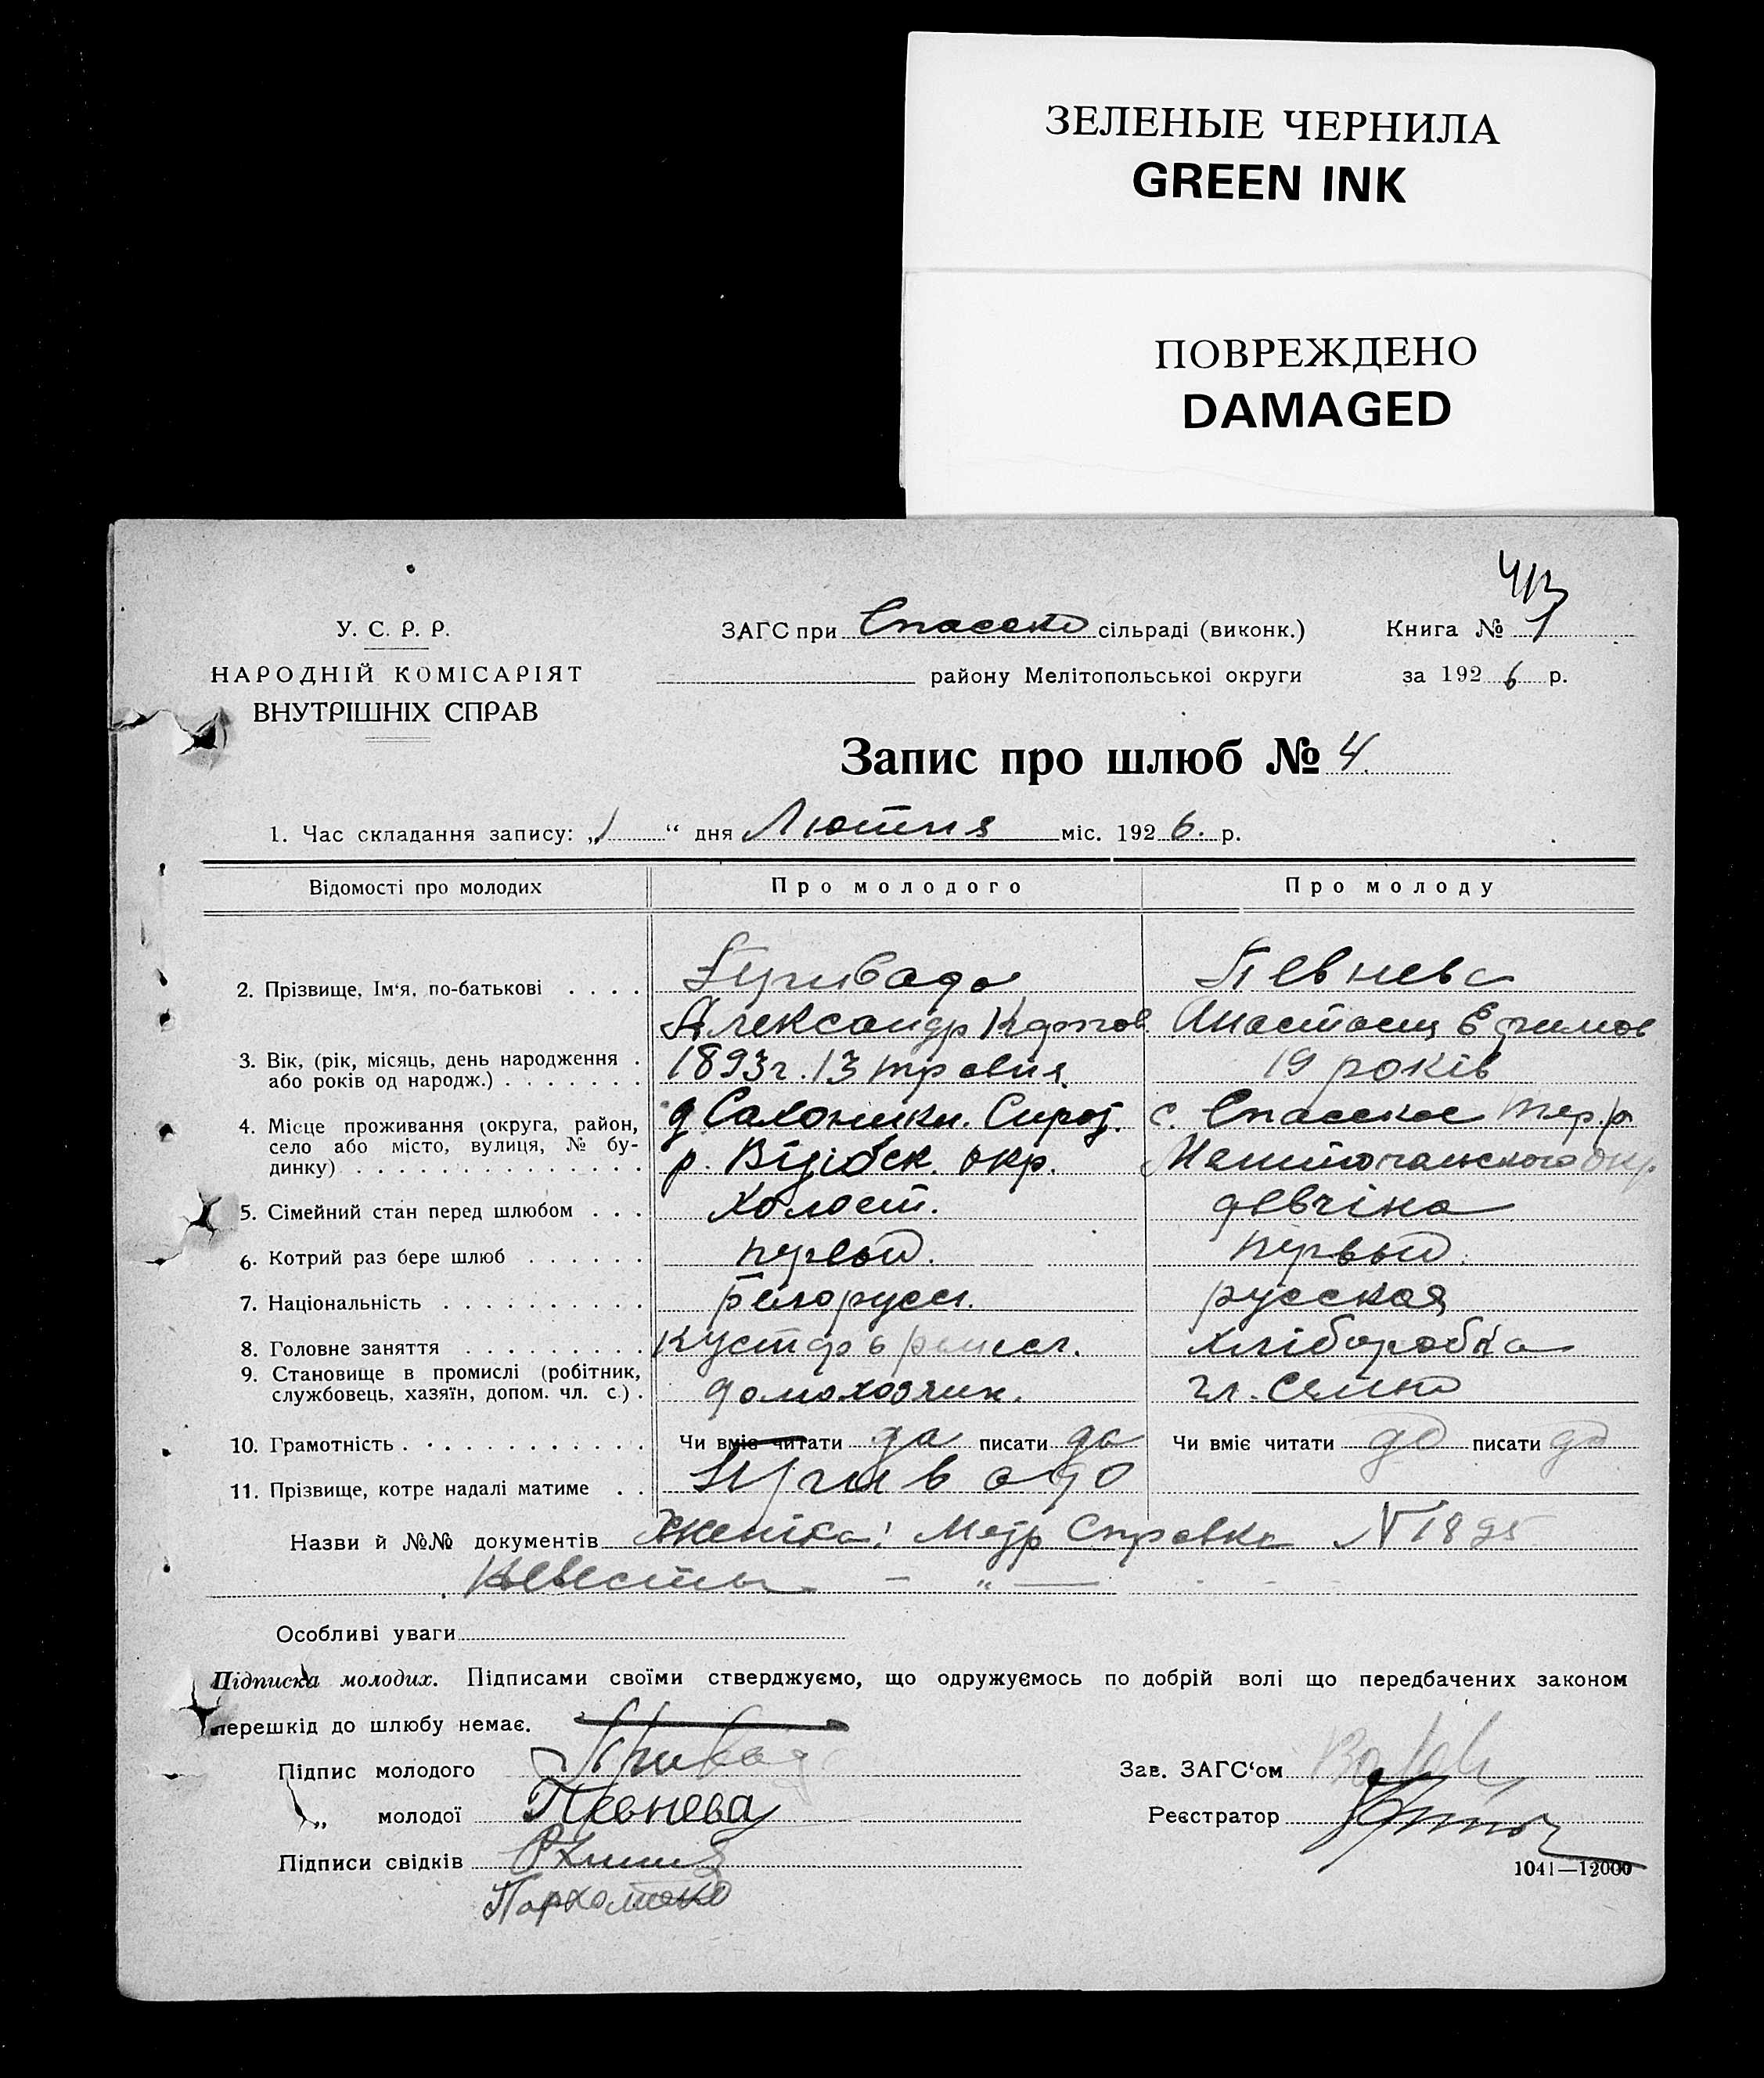 ЗЕЛЕНЫЕ ЧЕРНИЛА
GREEN INK
ПОВРЕЖДЕНО
DAMAGED
У. С. Р. Р.
НАРОДНІЙ КОМІСАРІЯТ
ВНУТРІШНІХ СПРАВ
ЗАГС при Спаско сільраді (виконк.)
району Мелітопольської округи
Книга № 1
за 1926 р.
Запис про шлюб № 4
1. Час складання запису: „1“ дня Лютня міс. 1926. р.
Відомості про молодих Про молодого Про молоду
2. Прізвище, Ім‘я, по-батькові . . . . Певнева
Александр Анастасия Ефимов
3. Вік, (рік, місяць, день народження . 1893г. 13 травня 19 років
або років од народж.) . . . . . . .
4. Місце проживання (округа, район, д. с. Спасское
село або місто, вулиця, № бу- р. Вітібск. окр. Мелитопольского окр.
динку) . . . . . . . . . . . . . .
5. Сімейний стан перед шлюбом . . . холост. девчіна
6. Котрий раз бере шлюб . . . . . . первый. первый.
7. Національність . . . . . . . . . . белорусс. русская
8. Головне заняття . . . . . . . . . кустарь хліборобка
9. Становище в промислі (робітник,
службовець, хазяїн, допом. чл. с.) . домохозяин. чл. семьи
10. Грамотність . . . . . . . . . . . . Чи вміє читати да писати да Чи вміє читати да писати да
11. Прізвище, котре надалі матиме . . Привадо
Назви й №№ документів Жениха: Метр Справка № 1895
Невесты — „ —
Особливі уваги
Підписка молодих. Підписами своїми стверджуємо, що одружуємось по добрій волі що передбачених законом
перешкід до шлюбу немає.
Підпис молодого
„ молодої Певнева
Підписи свідків
Пархоменко
Зав. ЗАГС‘ом
Реєстратор
1041—12000